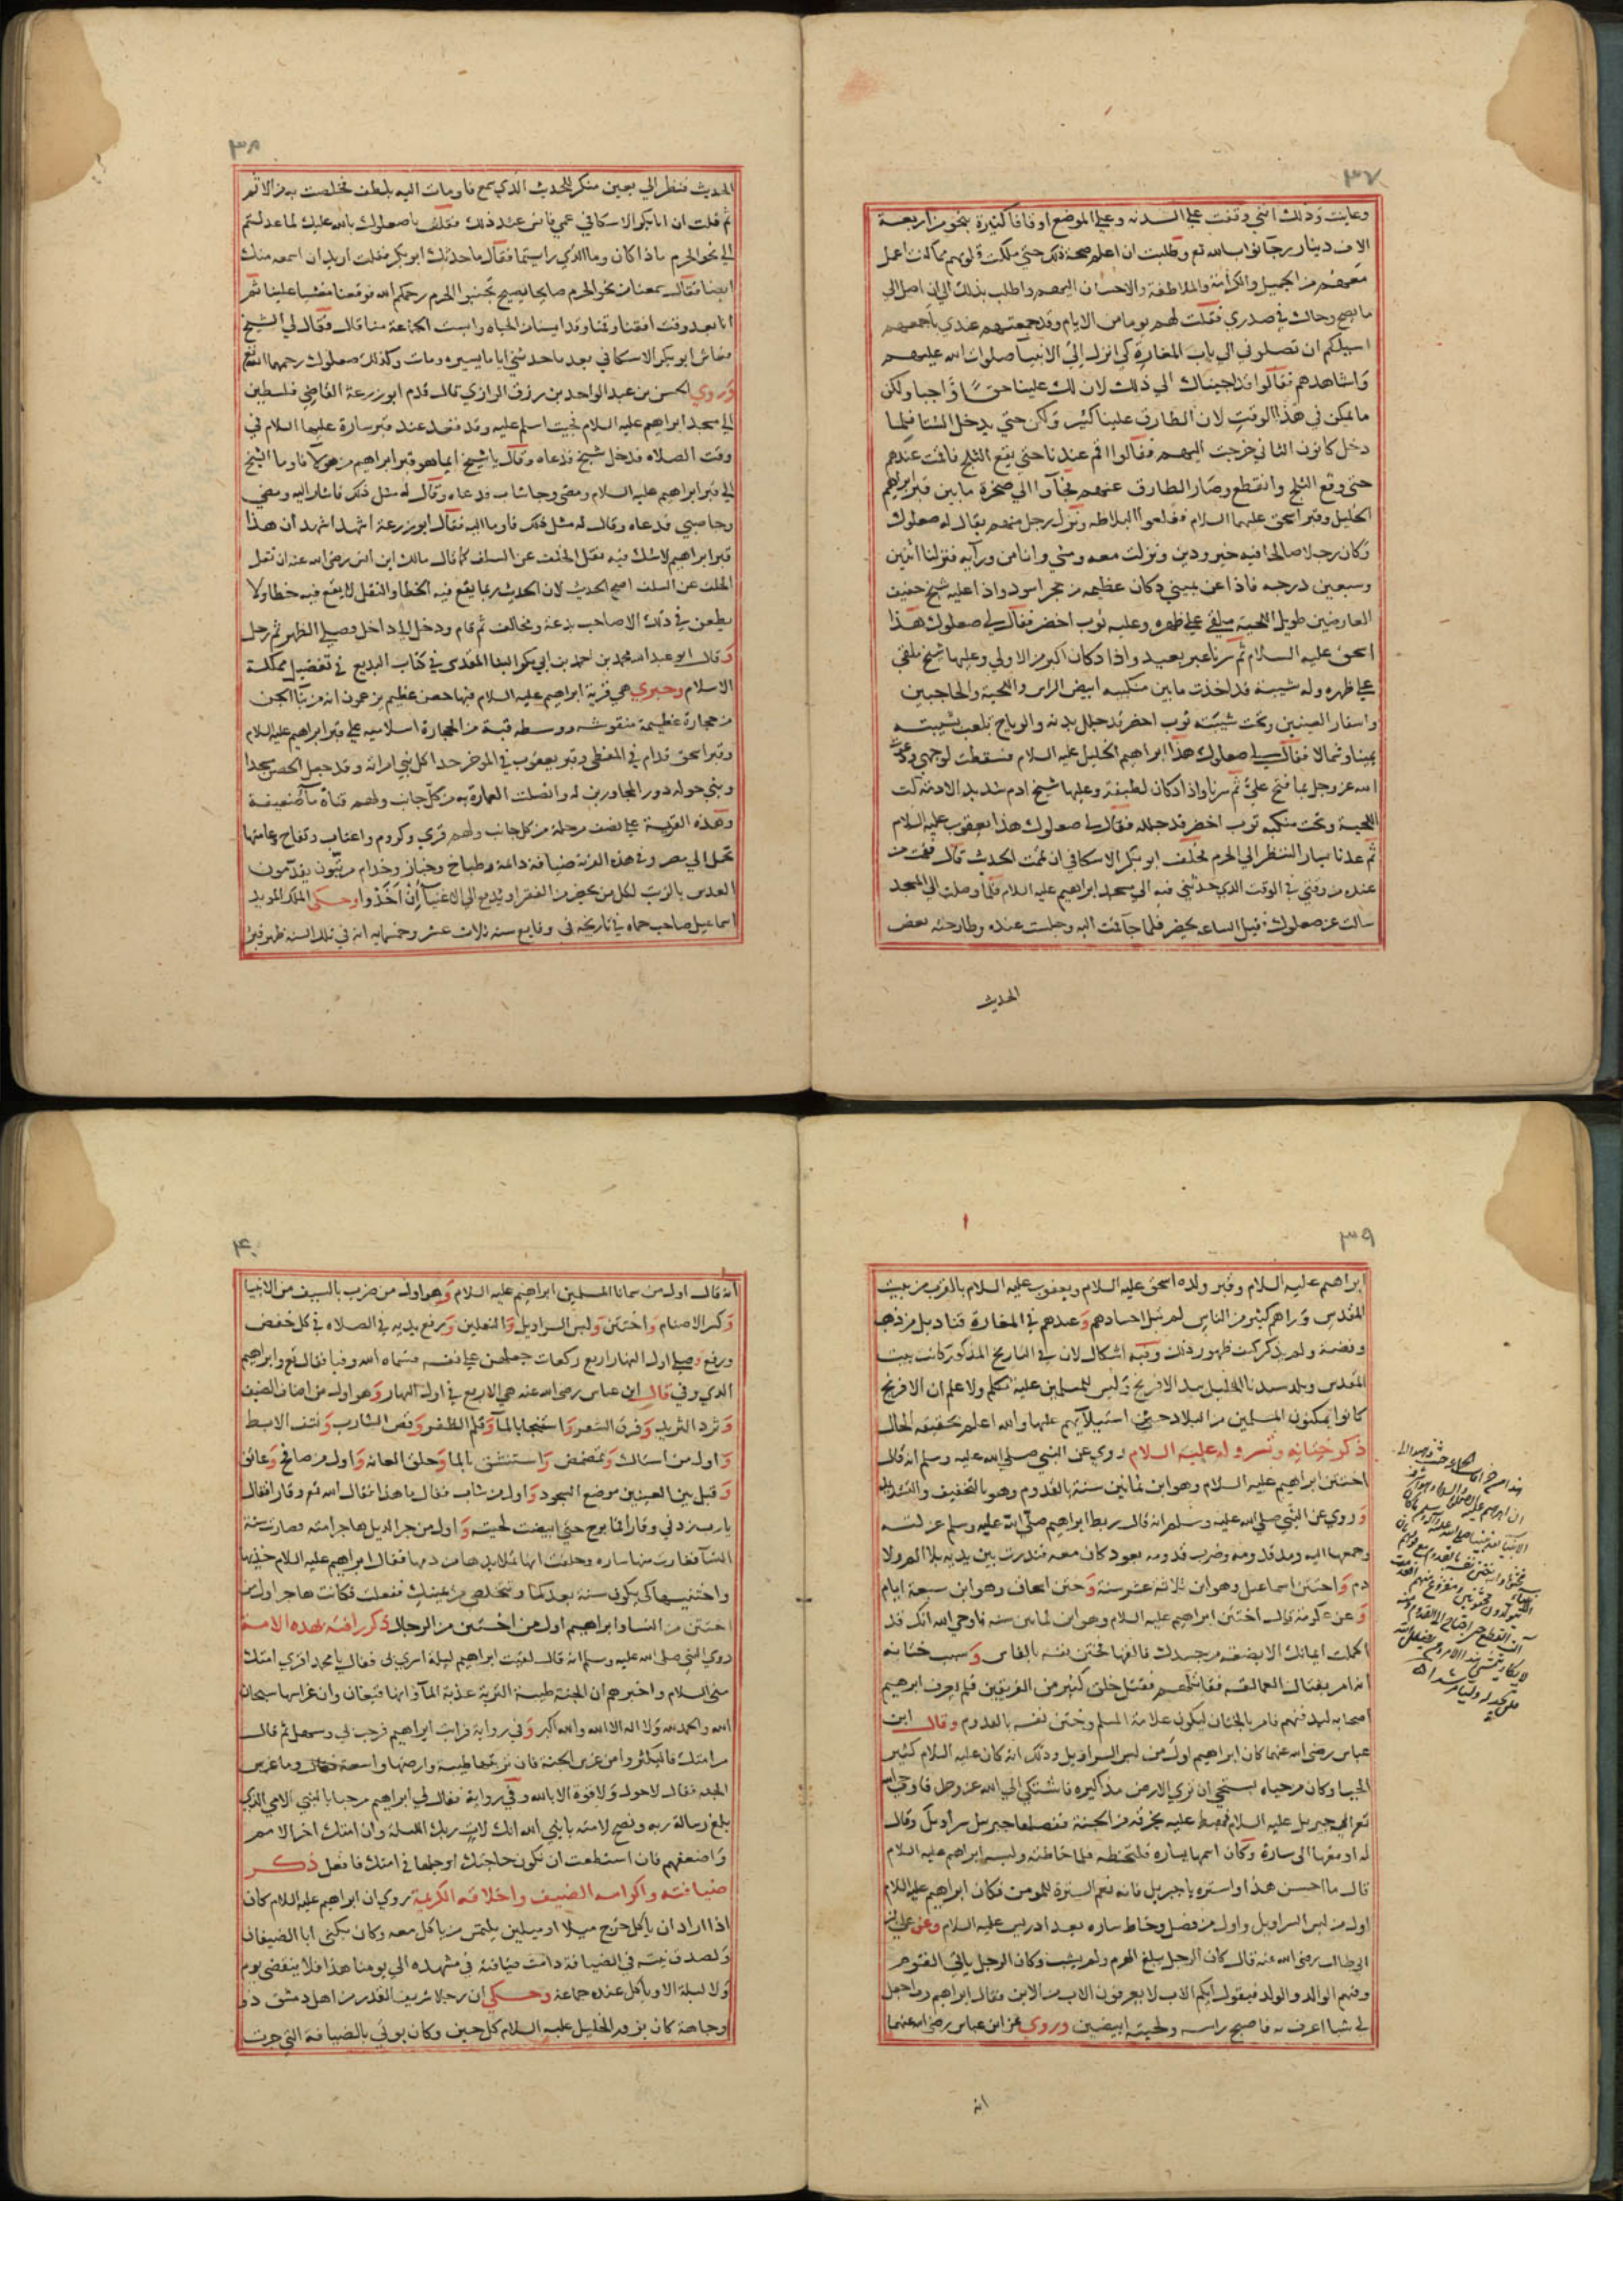 ٣٧
وعاينت وذلك انني وقفت على السدنه وعلى الموضع اوقافا كثيرة بنحو من اربعة
الاف دينار رجا ثواب الله تع وطلبت ان اعلم صحة ذلك حتى ملكت قلوبهم بما كنت اعمل
معهم من الجميل والكرامة والملاطفة والاحسان اليهم واطلب بذلك الى ان اصل الى
ما يصح وحاك في صدري فقلت لهم يوما من الايام وقد جمعتهم عندي باجمعهم
اسيلكم ان تصلوني الى باب المغارة كي انزل الى الانبيا صلوات الله عليهم
واشاهدهم فقالوا قد اجبناك الى ذلك لان لك علينا حقا واجبا ولكن
ما يمكن في هذا الوقت لان الطارق علينا كثير ولكن حتى يدخل الشتا فلما
دخل كانون الثاني خرجت اليهم فقالوا اقم عندنا حتى يقع الثلج فاقمت عندهم
حتى وقع الثلج وانقطع وصار الطارق عنهم فجآوا الى صخرة ما بين قبر ابراهيم
الخليل وقبر اسحق عليهما السلام فقلعوا البلاطه ونزل رجل منهم يقال له صعلوك
وكان رجلا صالحا فيه خير ودين ونزلت معه ومشي وانا من ورآيه فنزلنا اثنين
وسبعين درجه فاذا عن يميني دكان عظيمه من حجر اسود واذا عليه شيخ خفيف
العارضين طويل اللحية ملقى على ظهره وعليه ثوب اخضر فقال لي صعلوك هذا
اسحق عليه السلام ثم سرنا غير بعيد واذا دكان اكبر من الاولى وعليها شيخ ملقى
على ظهره وله شيبة قد اخذت ما بين منكبيه ابيض الراس واللحية والحاجبين
واشفار العينين وتحت شيبته ثوب اخضر قد جلل بدنه والرياح تلعب بشيبته
يمينا وشمالا فقال لي صعلوك هذا ابراهيم الخليل عليه السلام فسقطت لوجهي ودعوت
الله عز وجل بما فتح علي ثم سرنا واذا دكان لطيفة وعليها شيخ ادم شديد الادمة كث
اللحية وتحت منكبيه ثوب اخضر قد جلله فقال لي صعلوك هذا يعقوب عليه السلام
ثم عدنا يسار لننظر الى الحرم فحلف ابو بكر الاسكافي ان تمت الحديث قال فقمت من
عنده من وقتي في الوقت الذي حدثني فيه الى مسجد ابراهيم عليه السلام فلما وصلت الى المسجد
سالت عن صعلوك فقيل الساعه يحضر فلما جآ قمت اليه وجلست عنده وطارحته بعض
الحديث
٣٨
الحديث فنظر الي بعين منكر للحديث الذي سمع فاومات اليه بلطف تخلصت به من الاثم
ثم قلت ان ابا بكر الاسكافي عمي فانس عند ذلك فقلت يا صعلوك بالله عليك لما عدلتم
الى نحو الحرم ماذا كان وما الذي رايتما فقال ما حدثك ابو بكر فقلت اريد ان اسمعه منك
ايضا فقال سمعنا من نحو الحرم صايحا يصيح تجنبوا الحرم رحمكم الله فوقعنا مغشيا علينا ثم
انا بعد وقت افقنا وقمنا وقد ايسنا من الحياه وايست الجماعة منا قال فقال لي الشيخ
فعاش ابو بكر الاسكافي بعد ما حدثني اياما يسيره ومات وكذلك صعلوك رحمهما الله تع
وروي الحسن بن عبد الواحد بن رزق الرازي قال قدم ابو زرعة القاضي فلسطين
الى مسجد ابراهيم عليه السلام فجيت اسلم عليه وقد قعد عند قبر سارة عليها السلام في
وقت الصلاه فدخل شيخ فدعاه وقال يا شيخ ايما هو قبر ابراهيم من هولا فاوما الشيخ
الى قبر ابراهيم عليه السلام ومضى وجا شاب فدعاه وقال له مثل ذلك فاشار اليه ومضى
وجا صبي فدعاه وقال له مثل ذلك فاوما اليه فقال ابو زرعة اشهد اشهد ان هذا
قبر ابراهيم لا شك فيه نقل الخلف عن السلف كما قال مالك ابن انس رضي الله عنه ان نقل
الخلف عن السلف اصح الحديث لان الحديث ربما يقع فيه الخطا والنقل لا يقع فيه خطا ولا
يطعن في ذلك الا صاحب بدعة ومخالف ثم قام ودخل الى داخل فصلى الظهر ثم رحل
وقال ابو عبد الله محمد بن احمد بن ابي بكر البنا المقدسي في كتاب البديع في تفضيل مملكة
الاسلام وحبرى هي قرية ابراهيم عليه السلام فيها حصن عظيم يزعمون انه من بنا الجن
من حجارة عظيمة منقوشه ووسطه قبة من الحجارة اسلاميه على قبر ابراهيم عليه السلام
وقبر اسحق قدام في المغطى وقبر يعقوب في الموخر حدا كل نبي امراته وقد جعل الحصن مسجدا
وبني حوله دور للمجاورين له واتصلت العمارة به من كل جانب ولهم قناة ما ضعيفة
وهذه القرية على نصف مرحلة من كل جانب ولهم قرى وكروم واعناب وتفاح وعامتها
تحمل الى مصر وفي هذه القرية ضيافة دايمة وطباخ وخباز وخدام مرتبون يقدمون
العدس بالزيت لكل من يحضر من الفقرا ويدفع الى الاغنيآ ان اخذوا وحكى الملك المويد
اسماعيل صاحب حماه في تاريخه في وقايع سنه ثلاث عشر وخمسمايه انه في تلك السنه ظهر قبر
٣٩
ابراهيم عليه السلام وقبر ولده اسحق عليه السلام ويعقوب عليه السلام بالقرب من بيت
المقدس ورآهم كثير من الناس لم تبل اجسادهم وعندهم في المغارة قناديل من ذهب
وفضة ولم يذكر كيف ظهور ذلك وفيه اشكال لان في التاريخ المذكور كانت بيت
المقدس وبلد سيدنا الخليل بيد الافرنج وليس للمسلمين عليه تكلم ولا علم ان الافرنج
كانوا يمكنون المسلمين من البلاد حين استيلآيهم عليها والله اعلم حقيقة الحال
ذكر ختانه وتسروله عليه السلام روي عن النبي صلى الله عليه وسلم انه قال
اختتن ابراهيم عليه السلام وهو ابن ثمانين سنة بالقدوم وهو بالتخفيف والتشديد
وروي عن النبي صلى الله عليه وسلم انه قال ربط ابراهيم صلى الله عليه وسلم عزلته
وجمعها اليه ومد قدومه وضرب قدومه بعود كان معه فندرت بين يديه بلا الم ولا
دم واختتن اسماعيل وهو ابن ثلاثة عشر سنة وختن اسحاق وهو ابن سبعة ايام
وعن عكرمة قال اختتن ابراهيم عليه السلام وهو ابن ثمانين سنه فاوحى الله انك قد
اكملت ايمانك الا بضعة من جسدك فالقها فختن نفسه بالفاس وسبب ختانه
انه امر بقتال العمالقه فقاتلهم فقتل خلق كثير من الفريقين فلم يعرف ابراهيم
اصحابه ليدفنهم فامر بالختان ليكون علامة المسلم وختن نفسه بالقدوم وقال ابن
عباس رضي الله عنهما كان ابراهيم اول من لبس السراويل وذلك انه كان عليه السلام كثير
الحيا وكان من حياه يستحي ان ترى الارض مذاكيره فاشتكى الى الله عز وجل فاوحى الله
تع الى جبريل عليه السلام فهبط عليه بخرقه من الجنة ففصلها جبريل سراويل وقال
له ادفعها الى سارة وكان اسمها يساره فلتخطه فلما خاطته ولبسه ابراهيم عليه السلام
قال ما احسن هذا واستره يا جبريل فانه نعم السترة للمومن فكان ابراهيم عليه السلام
اول من لبس السراويل واول من فصل وخاط ساره بعد ادريس عليه السلام وعن علي بن
ابي طالب رضي الله عنه قال كان الرجل يبلغ الهرم ولم يشب وكان الرجل ياتي القوم
وفيهم الوالد والولد فيقول ايكم الاب لا يعرفون الاب من الابن فقال ابراهيم رب اجعل
لي شيا اعرف به فاصبح راسه ولحيته ابيضين وروي عن ابن عباس رضي الله عنهما
انه
٤٠
انه قال اول من سمانا المسلمين ابراهيم عليه السلام وهو اول من ضرب بالسيف من الانبيا
وكسر الاصنام واختتن ولبس السراويل والنعلين ورفع يديه في الصلاه في كل خفض
ورفع وصلى اول النهار اربع ركعات جعلهن على نفسه فسماه الله وفيا فقال تع وابراهيم
الذي وفى قال ابن عباس رضي الله عنه هي الاربع في اول النهار وهو اول من اضاف الضيف
وثرد الثريد وفرق الشعر واستنجا بالمآ وقلم الظفر وقص الشارب ونتف الابط
واول من استاك وتمضمض واستنشق بالما وحلق العانه واول من صافح وعانق
وقبل بين العينين موضع السجود واول من شاب فقال ما هذا فقال الله تع وقار فقال
يا رب زدني وقارا فما برح حتى ابيضت لحيته واول من جر الذيل هاجر امته
واختنيها كي يكون سنة بعدكما وتتخلصي من يمينك ففعلت فكانت هاجر اول من
اختتن من النسا وابراهيم اول من اختتن من الرجال ذكر رافته بهذه الامة
روي النبي صلى الله عليه وسلم انه قال لقيت ابراهيم ليلة اسري بي فقال يا محمد اقري امتك
مني السلام واخبرهم ان الجنة طيبة التربة عذبة المآ وانها قيعان وان غراسها سبحان
الله والحمد لله ولا اله الا الله والله اكبر وفي رواية فرايت ابراهيم فرحب بي وسهل ثم قال
مر امتك فليكثروا من غرس الجنة فان تربتها طيبة وارضها واسعة فقال وما غرس
الجنه فقال لا حول ولا قوة الا بالله وفي رواية فقال لي ابراهيم مرحبا بالنبي الامي الذي
بلغ رسالة ربه ونصح لامته يا نبي الله انك لاق ربك الليلة وان امتك اخر الامم
واضعفهم فان استطعت ان تكون حاجتك او جلها في امتك فافعل ذكر
ضيافته واكرامه الضيف واخلاقه الكريمة روي ان ابراهيم عليه السلام كان
اذا اراد ان ياكل خرج ميلا او ميلين يلتمس من ياكل معه وكان يكنى ابا الضيفان
ولصدق نيته في الضيافة دامت ضيافته في مشهده الى يومنا هذا فلا ينقضي يوم
ولا ليلة الا وياكل عنده جماعة وحكي ان رجلا شريف القدر من اهل دمشق ذو
وجاهة كان يزور الخليل عليه السلام كل حين وكان يوتى بالضيافة التي جرت